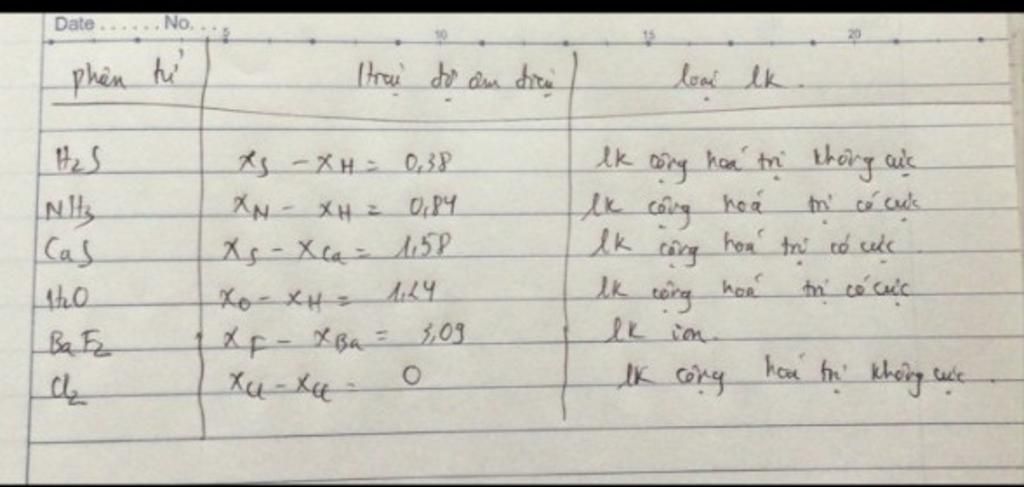 Date ...... No. ...
5 10 15 20
phân tử Hiệu độ âm điện loại lk.
H2S xS - xH = 0,38 lk cộng hoá trị không cực
NH3 xN - xH = 0,84 lk cộng hoá trị có cực
CaS xS - xCa = 1,58 lk cộng hoá trị có cực
H2O xO - xH = 1,24 lk cộng hoá trị có cực
BaF2 xF - xBa = 3,09 lk ion.
Cl2 xCl - xCl = 0 lk cộng hoá trị không cực.